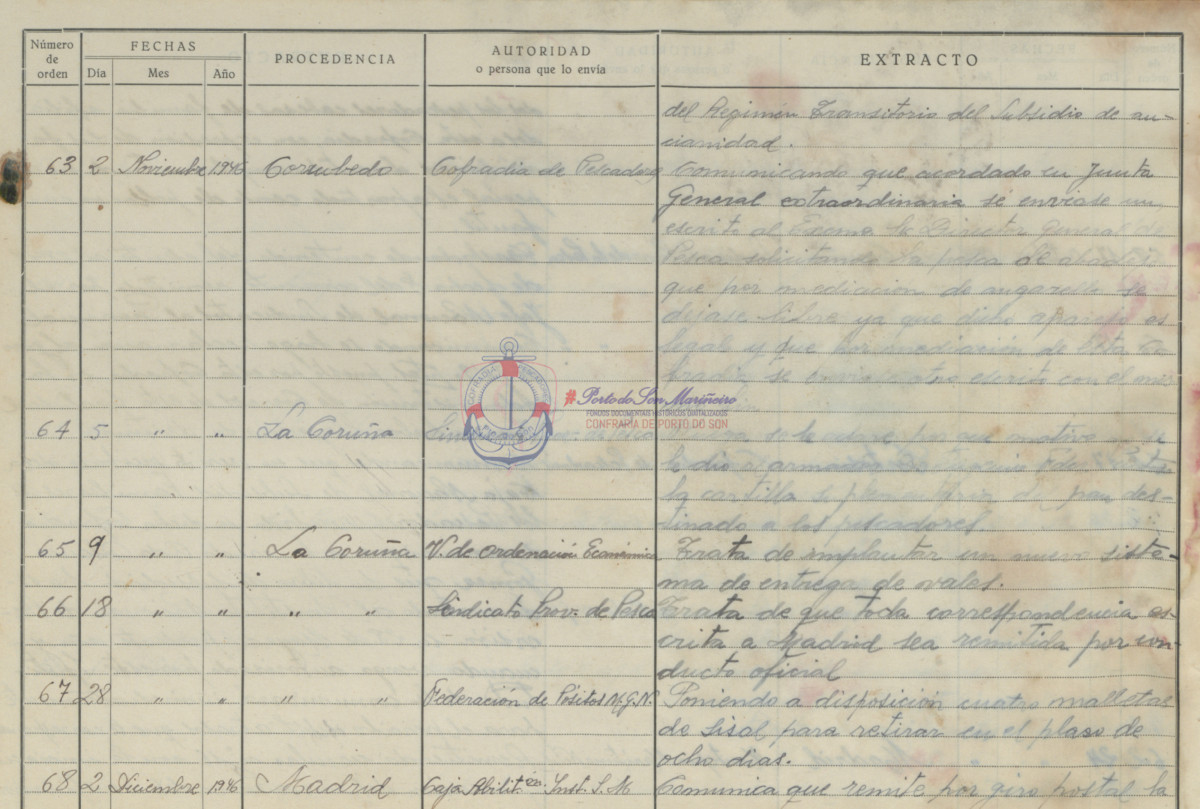 Número de orden FECHAS PROCEDENCIA AUTORIDAD o persona que lo envía EXTRACTO
Día Mes Año
del Regimén Transitorio del Subsidio de an-
cianidad.
63 2 Noviembre 1946 Corrubedo Cofradia de Pescadores Comunicando que acordado en Junta
General extraordinaria se enviase un
escrito al Excmo Sr Director General de
Pesca solicitando la pesca de abadejo
que por mediación de
dejase libre ya que dicho aparejo es
legal y que por mediación de esta Co-
fradia se otro escrito con el
#Porto do Son Mariñeiro
FONDOS DOCUMENTAIS HISTÓRICOS DIXITALIZADOS
CONFRARÍA DE PORTO DO SON
COFRADIA PESCADORES
64 5 " " La Coruña Pesca que motivo se
le dio al armador
la cartilla suplementaria de pan des-
tinado a los pescadores.
65 9 " " La Coruña V. de Ordenación Económica Trata de implantar un nuevo siste-
ma de entrega de vales.
66 18 " " " " Sindicato Prov. de Pesca Trata de que toda correspondencia es-
crita a Madrid sea remitida por con-
ducto oficial
67 28 " " " " Federación de Pósitos M.G.N. Poniendo a disposición cuatro malletas
de sisal para retirar en el plaso de
ocho dias.
68 2 Diciembre 1946 Madrid Caja Abilit.ón Inst. S. M Comunica que remite por giro postal la